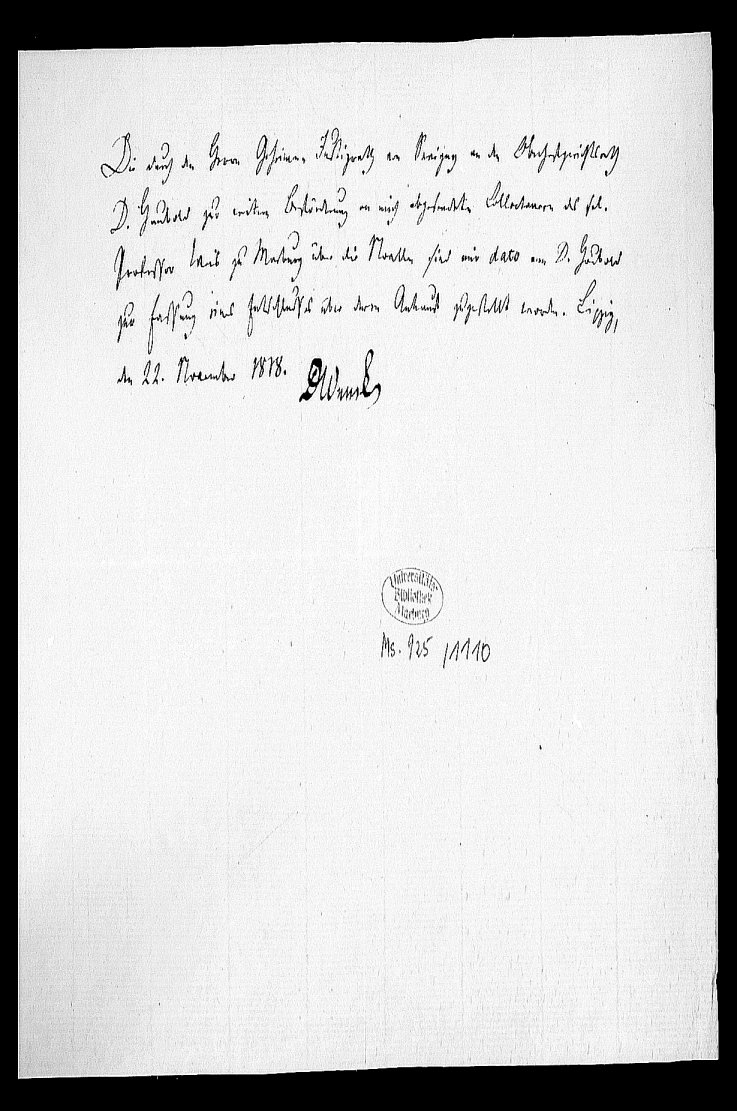 Die durch den Herrn Geheimen Justizrath von Savigny an den Oberhofgerichtsrath
D. Haubold zur weitern Beförderung an mich abgesendeten Collectaneen des sel.
Professor Weis zu Marburg über die Novellen sind mir dato von D. Haubold
zur Fassung eines Entschlusses über deren Ankauf zugestellt worden. Leipzig,
den 22. November 1818. D Wenck
Universitäts-
Bibliothek
Marburg
Ms. 925 / 1110